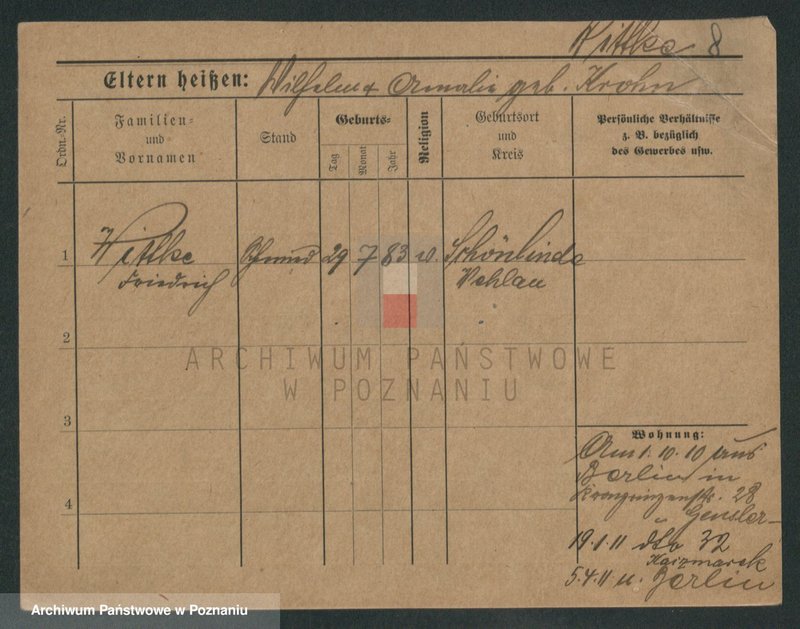 Wittke 8
Eltern heißen: Wilhelm & Amalie geb. Krohn
Ordn.-Nr.
Familien- und Vornamen
Stand
Geburts-
Tag
Monat
Jahr
Religion
Geburtsort und Kreis
Persönliche Verhältnisse
z. B. bezüglich
des Gewerbes usw.
1 Wittke 29 7 83 Schönlinde
Friedrich Wehlau
2
ARCHIWUM PAŃSTWOWE
W POZNANIU
3
4
Wohnung:
Am 1.10.10 aus
Berlin in
Kronprinzenstr. 28
Gensler
19.1.11 dto 32
Kaczmarek
5.4.11 n. Berlin
Archiwum Państwowe w Poznaniu